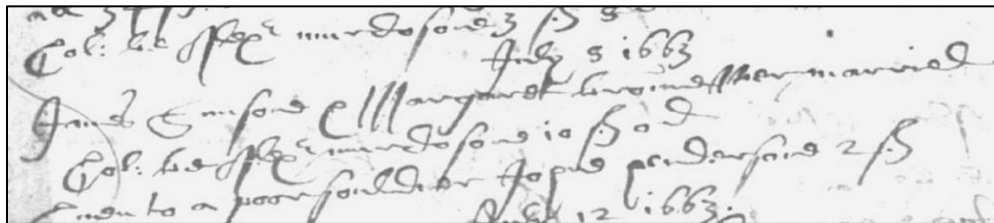 Col: be Alexr murdosone 3 sh 8
July 5 1663
James Simsone & Margaret broune wer married
Col: be Alexr murdosone 10 sh 0 d
Given to a poor souldier Johne hendersone 2 sh
July 12 1663.